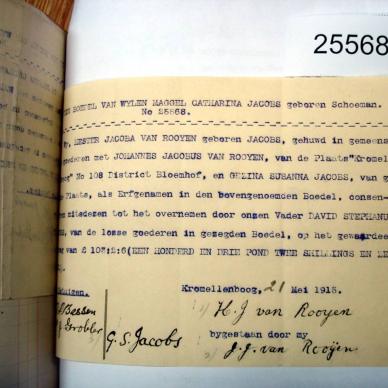 25568
BOEDEL VAN WYLEN MAGGEL CATHARINA JACOBS geboren Schoeman.
No 25568.
HESTER JACOBA VAN ROOYEN geboren JACOBS, gehuwd in gemeens
goederen met JOHANNES JACOBUS VAN ROOYEN, van de Plaats"Kromel
No 108 District Bloemhof, en GEZINA SUSANNA JACOBS, van g
Plaats, als Erfgenamen in den bovengenoemden Boedel, consen-
mitsdezen tot het overnemen door onzen Vader DAVID STEPHANU
van de losse goederen in gezegden Boedel, op het gewaardee
van £ 103:2:6(EEN HONDERD EN DRIE POND TWEE SHILLINGS EN ZE
Kromellenboog, 21 Mei 1915.
H. J van Rooyen
Grobler
G. S. Jacobs
bygestaan door my
J. J. van Rooÿen